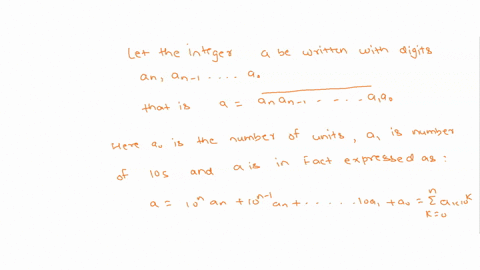 Let the integer a be written with digits
an, an-1 .... a0
that is a = an an-1 ..... a1 a0
Here a0 is the number of units, a1 is number
of 10s and a is in fact expressed as:
a = 10^n an + 10^n-1 an + ...... 10a1 + a0 = Σ_{K=0}^{n} aK×10^K